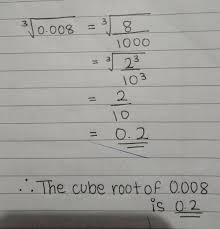 ∛0.008 = ∛(8/1000)
= ∛(2³/10³)
= 2/10
= 0.2
∴ The cube root of 0.008
is 0.2